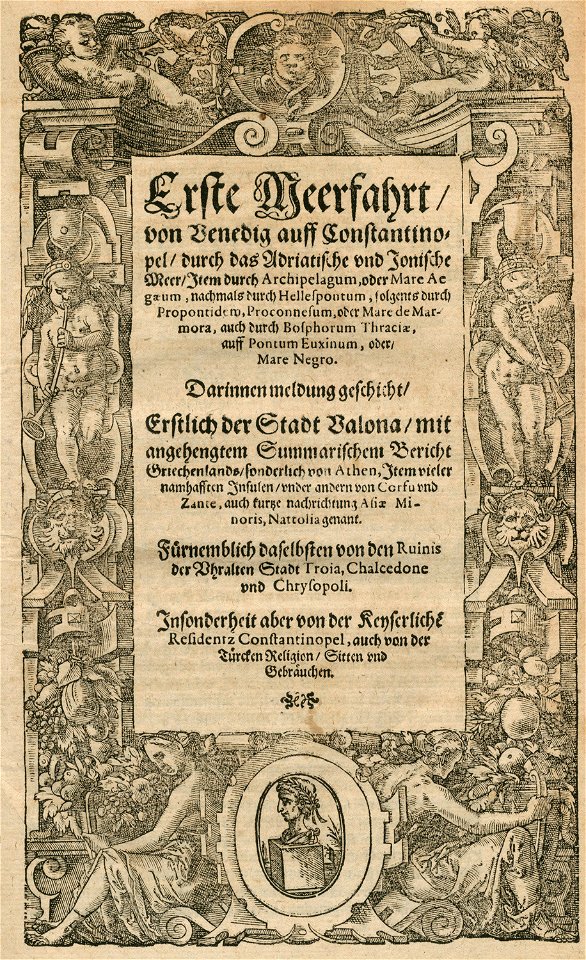 Erste Meerfahrt /
von Venedig auff Constantino-
pel / durch das Adriatische vnd Jonische
Meer / Item durch Archipelagum, oder Mare Ae
gæum, nachmals durch Hellespontum, folgents durch
Propontidem, Proconnesum, oder Mare de Mar-
mora, auch durch Bosphorum Thraciæ,
auff Pontum Euxinum, oder /
Mare Negro.
Darinnen meldung geschicht /
Erstlich der Stadt Valona / mit
angehengtem Summarischem Bericht
Griechenlands / sonderlich von Athen, Item vieler
namhafften Insulen / vnder andern von Corfu vnd
Zante, auch kurtze nachrichtung Asiæ Mi-
noris, Nattolia genant.
Fürnemblich daselbsten von den Ruinis
der Vhralten Stadt Troia, Chalcedone
vnd Chrysopoli.
Insonderheit aber von der Keyserlichẽ
Residentz Constantinopel, auch von der
Türcken Religion / Sitten vnd
Gebräuchen.